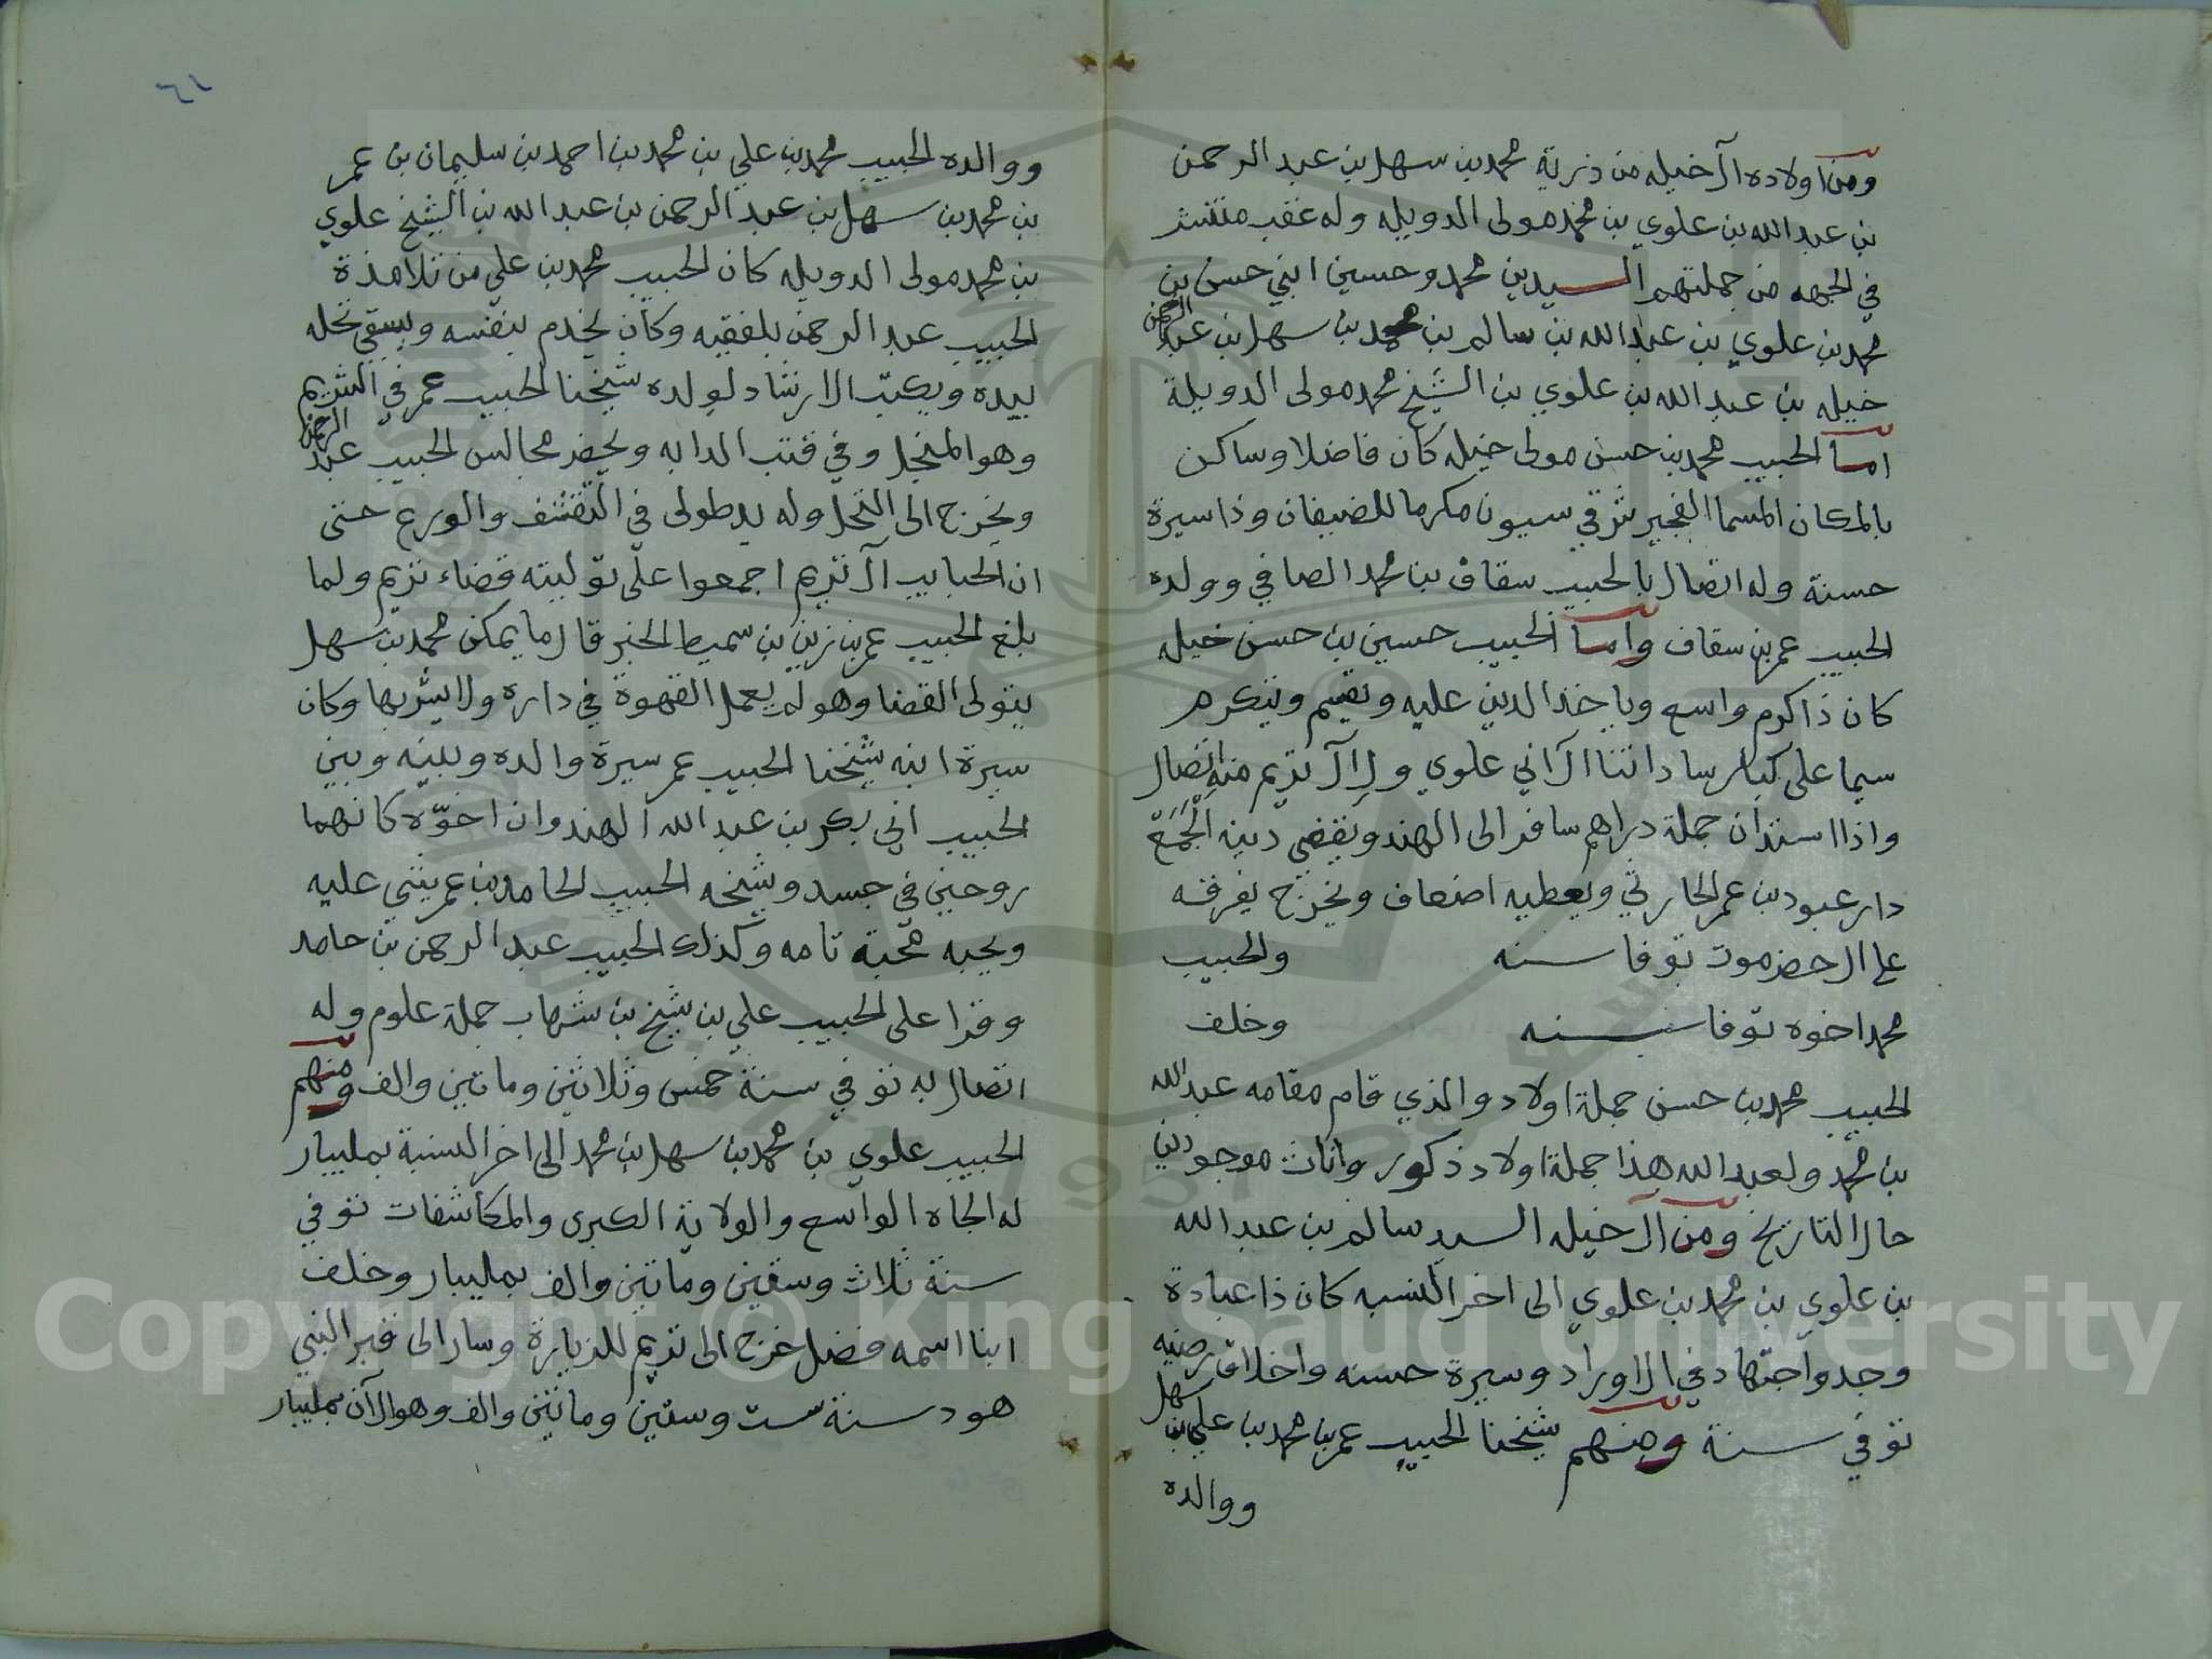 ومن اولاده آل خيله من ذرية محمد بن سهل بن عبد الرحمن
بن عبد الله بن علوي بن محمد مولى الدويله وله عقب منتشر
في الجهه من جملتهم السيدين محمد وحسين ابني حسن بن
محمد بن علوي بن عبد الله بن سالم بن محمد بن سهل بن عبد الرحمن
خيله بن عبد الله بن علوي بن الشيخ محمد مولى الدويلة
اما الحبيب محمد بن حسن مولى خيله كان فاضلا وساكن
بالمكان المسما الفجير شرقي سيون مكرما للضيفان وذا سيرة
حسنة وله اتصال بالحبيب سقاف بن محمد الصافي وولده
الحبيب عمر بن سقاف واما الحبيب حسين بن حسن خيله
كان ذا كرم واسع وياخذ الدين عليه ويقيم ويتكرم
سيما على كبار ساداتنا آل ابي علوي ول آل تريم منه اتصال
واذا استدان جملة دراهم سافر الى الهند ويقضي دينه الجمع
دار عبود بن عمر الحارثي ويعطيه اضعاف ويخرج يفرقه
على ال حضرموت توفا سنه والحبيب
محمد اخوه توفا سنه وخلف
الحبيب محمد بن حسن جملة اولاد والذي قام مقامه عبد الله
بن محمد ولعبد الله هذا جملة اولاد ذكور واناث موجودين
حال التاريخ ومن آل خيله السيد سالم بن عبد الله
بن علوي بن محمد بن علوي الى اخر النسبه كان ذا عبادة
وجد واجتهاد في الاوراد وسيرة حسنه واخلاق رضيه
توفي سنة ومنهم شيخنا الحبيب عمر بن محمد بن علي بن سهل
ووالده
٦١
ووالده الحبيب محمد بن علي بن محمد بن احمد بن سليمان بن عمر
بن محمد بن سهل بن عبد الرحمن بن عبد الله بن الشيخ علوي
بن محمد مولى الدويله كان الحبيب محمد بن علي من تلامذة
الحبيب عبد الرحمن بلفقيه وكان يخدم بنفسه ويسقي نخله
بيده ويكتب الارشاد لولده شيخنا الحبيب عمر في الشريم
وهو المنجل وفي قتب الدابه ويحضر مجالس الحبيب عبد الرحمن
ويخرج الى النخل وله يد طولى في التقشف والورع حتى
ان الحبايب آل تريم اجمعوا على توليته قضاء تريم ولما
بلغ الحبيب عمر بن زين بن سميط الخبر قال ما يمكن محمد بن سهل
يتولى القضا وهو لم يعمل القهوة في داره ولا يشربها وكان
سيرة ابنه شيخنا الحبيب عمر سيرة والده وبينه وبين
الحبيب ابي بكر بن عبد الله الهندوان اخوّه كانهما
روحين في جسد وشيخه الحبيب الحامد بن عمر يثني عليه
ويحبه محبة تامه وكذلك الحبيب عبد الرحمن بن حامد
وقرا على الحبيب علي بن شيخ بن شهاب جملة علوم وله
اتصال به توفي سنة خمس وثلاثين وماتين والف ومنهم
الحبيب علوي بن محمد بن سهل بن محمد الى اخر النسبة بمليبار
له الجاه الواسع والولاية الكبرى والمكاشفات توفي
سنة ثلاث وستين وماتين والف بمليبار وخلف
ابنا اسمه فضل خرج الى تريم للزيارة وسار الى قبر النبي
هود سنة ست وستين وماتين والف وهو الآن بمليبار
Copyright © King Saud University
1957